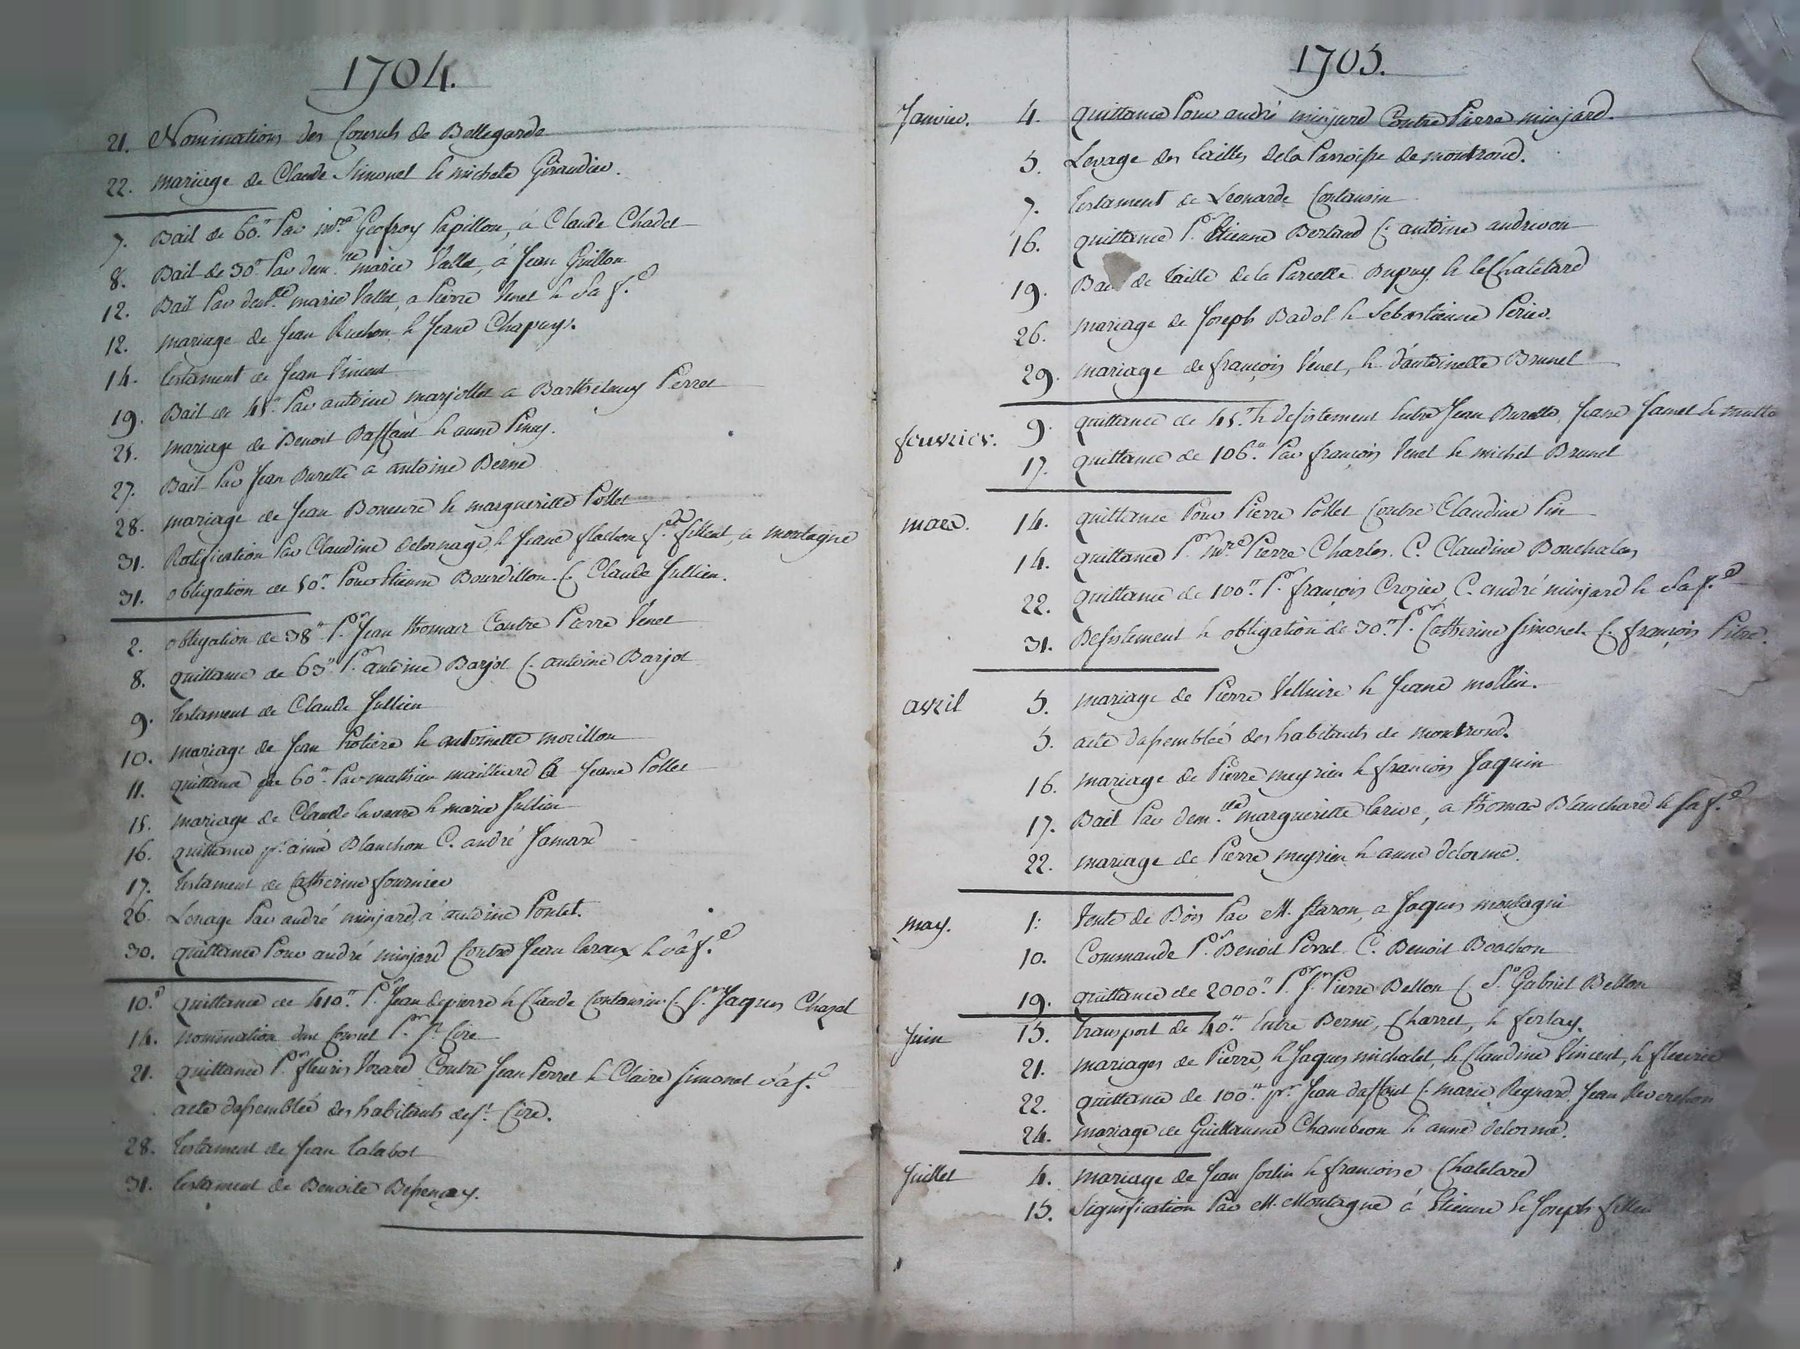 1704.
21. Nominations des Consuls de Bellegarde
22. mariage de Claude Simonet & michele Giraudier.
7. Bail de 60.# Par mre Geofroy Papillon, à Claude Chadet
8. Bail de 30# Par demlle marie Vallet, à Jean Guillon
12. Bail Par demlle marie Vallet, a Pierre Venet & Sa f.e
12. mariage de Jean Ruchon & Jeane Chapuys.
14. testament de Jean Vincent
19. Bail de 45# Par antoine marjollet a Barthelemy Perret
25. mariage de Benoit Daffaut & anne Pinay.
27. Bail Par Jean Durette a antoine Berne
28. mariage de Jean Boneure & margueritte Pollet
31. Ratification Par Claudine Delornage, & Jeane flachon pr. fillent, a montagne
31. obligation de 50# Pour Etienne Bourdillon C. Claude Jullien.
2. obligation de 38# Pr Jean thomas Contre Pierre Venet
8. quittance de 63# Pr antoine Barjot C. antoine Barjot
9. testament de Claude Jullien
10. mariage de Jean Protiere & antoinette morillon
11. quittance de 60# Par mathieu mailleard à Jeane Pollet
15. mariage de Claude lavaure & marie Jullien
16. quittance pr aimé Blanchon C. andré Jamard
17. testament de Catherine fournier
26. Louage Par andré minjard, à antoine Pontet.
30. quittance Pour andré minjard Contre Jean laroux & à f.e
10. quittance de 410# Pr Jean depierre & Claude Contausin C. Sr. Jaques Chazal
14. nomination dun Consul Pr St Cire
21. quittance Pr fleuris Verard Contre Jean Perret & Claire Simonet à f.e
acte dassemblée des habitants de St. Cire.
28. testament de Jean talabot
31. testament de Benoite Bessenay.
1705.
Janvier. 4. quittance Pour andré minjard Contre Pierre minjard.
5. Levage des tailles de la Parroisse de montrond.
7. testament de Leonarde Contausin
16. quittance Pr Etienne Bertaud C. antoine andrivon
19. Bail de taille de la Parcelle Dupuy & le Chatelard
26. mariage de Joseph Badol & Sebastienne Perier.
29. mariage de françois Venet, & d'antoinette Brunel
fevrier. 9. quittance de 45# & desistement Entre Jean Durette, Jeane Jamet & mutte
17. quittance de 106# Par françois Venet & michel Brunel
mars. 14. quittance Pour Pierre Pollet Contre Claudine Pin
14. quittance Pr mre Pierre Charles. C. Claudine Bouchalas
22. quittance de 100# Pr françois Crozier, C. andré minjard & Sa f.e
31. Desistement & obligation de 30# Pr Catherine Simonet C. françois Pitre.
avril 5. mariage de Pierre Velluire & Jeane mollin.
5. acte dassemblée des habitants de montrond.
16. mariage de Pierre meyrieu & francois Jaquin
17. Bail Par demlle margueritte larive, a thomas Blanchard & sa f.e
22. mariage de Pierre meyrieu & anne delorme.
may. 1. Vente de Bois Par M. Staron, a Jaques montagni
10. Commande Pr Benoit Perret C. Benoit Boachon
19. quittance de 2000# Pr Sr Pierre Bellon C. Sr Gabriel Bellon
Juin 15. transport de 40# Entre Berne, Charret, & ferlay.
21. mariages de Pierre, & Jaques michalet, & Claudine Vincent, & fleurie
22. quittance de 100# pr Jean daffaut C. marie Reynard, Jean Reverchon
24. mariage de Guillaume Chambeon & anne delorme.
Juillet 4. mariage de Jean fortin & francoise Chatelard
15. Signification Par M. Montagne à Etienne & Joseph fillen